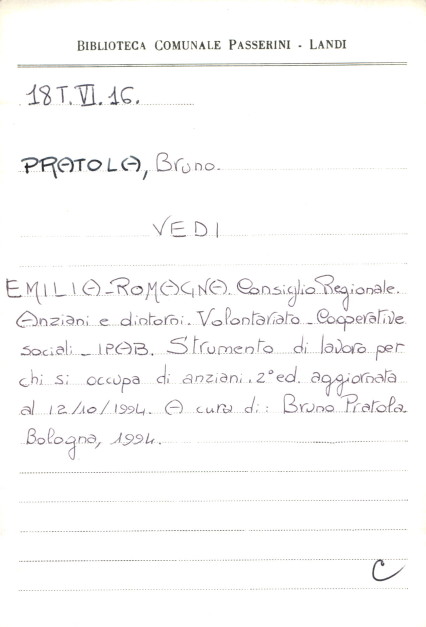 BIBLIOTECA COMUNALE PASSERINI - LANDI
18 T.VI.16.
PRATOLA, Bruno.
VEDI
EMILIA-ROMAGNA. Consiglio Regionale.
Anziani e dintorni. Volontariato - Cooperative
sociali - IPAB. Strumento di lavoro per
chi si occupa di anziani. 2° ed. aggiornata
al 12/10/1994. A cura di: Bruno Pratola.
Bologna, 1994.
C